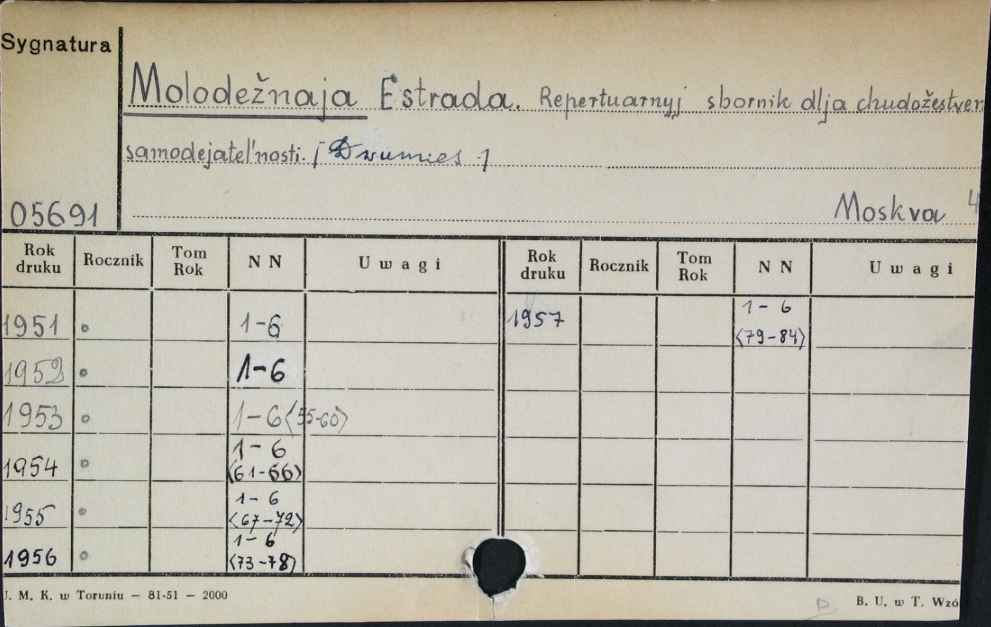 Sygnatura
Molodežnaja Estrada. Repertuarnyj sbornik dlja chudožestven
samodejatel'nosti. [Dwumies.]
05691 Moskva 4
Rok druku Rocznik Tom Rok NN Uwagi Rok druku Rocznik Tom Rok NN Uwagi
1951 1-6 1957 1-6 <79-84>
1952 1-6
1953 1-6 <55-60>
1954 1-6 <61-66>
1955 1-6 <67-72>
1956 1-6 <73-78>
U. M. K. w Toruniu — 81-51 — 2000 D. B. U. w T. Wzó